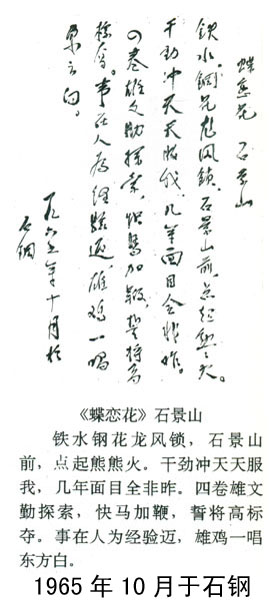 蝶恋花 石景山
铁水钢花龙风锁。石景山前,点起熊々火。
干劲冲天天服我,几年面目全非昨。
四卷雄文勤探索,快马加鞭,誓将高
标夺。事在人为经验迈,雄鸡一唱
东方白。
一九六五年十月于
石钢
《蝶恋花》石景山
铁水钢花龙风锁,石景山
前,点起熊熊火。干劲冲天天服
我,几年面目全非昨。四卷雄文
勤探索,快马加鞭,誓将高标
夺。事在人为经验迈,雄鸡一唱
东方白。
1965 年 10 月于石钢